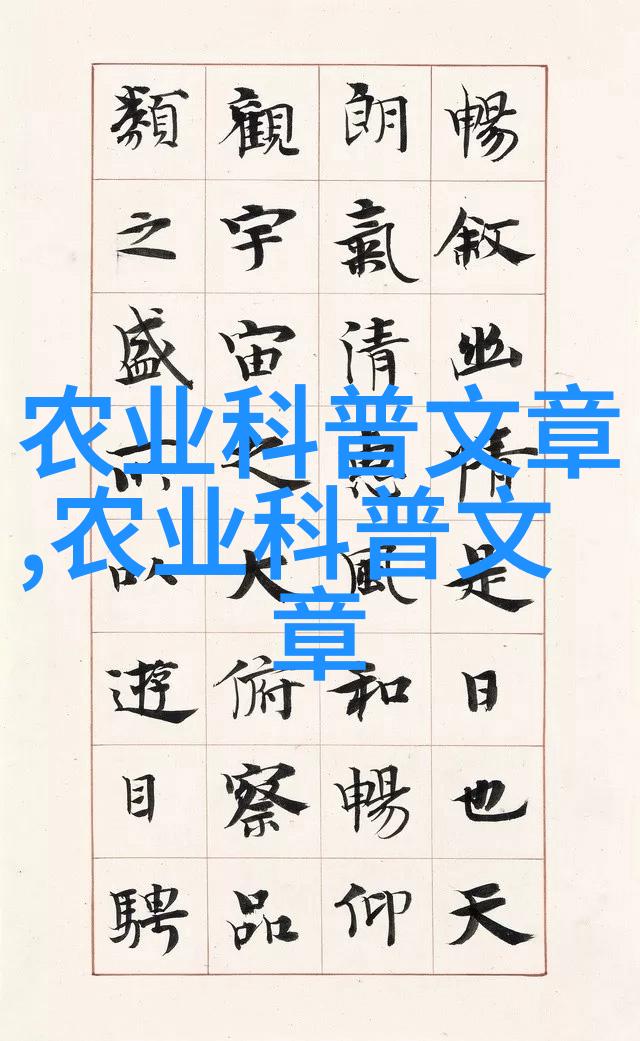 暢敘幽情是日也天
朗氣清惠風和暢仰
觀宇宙之大俯察品
類之盛所以遊目騁
农业科普文章
,农业科普文
章